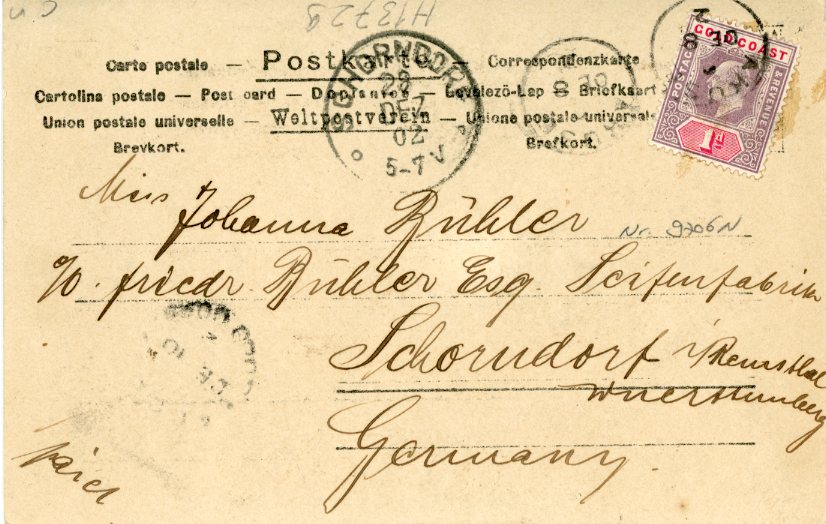 H13729
Carte postale — Postkarte — Correspondenzkarte
Cartolina postale — Post card — Dopisnice — Levelező-Lap — Briefkaart
Union postale universelle — Weltpostverein — Unione postale universale
Brevkort. Brefkort.
SCHORNDORF
23
DEZ
02
5-7 V
DE 8
DE 8
2
GOLD COAST
POSTAGE & REVENUE
1D
Miss
Johanna Bühler
Nr. 9706N
c/o. Friedr Bühler Esq. Seifenfabrik
Schorndorf i/Remsthal
Wuerttemberg
Germany.
GOLD COAST
DE 10